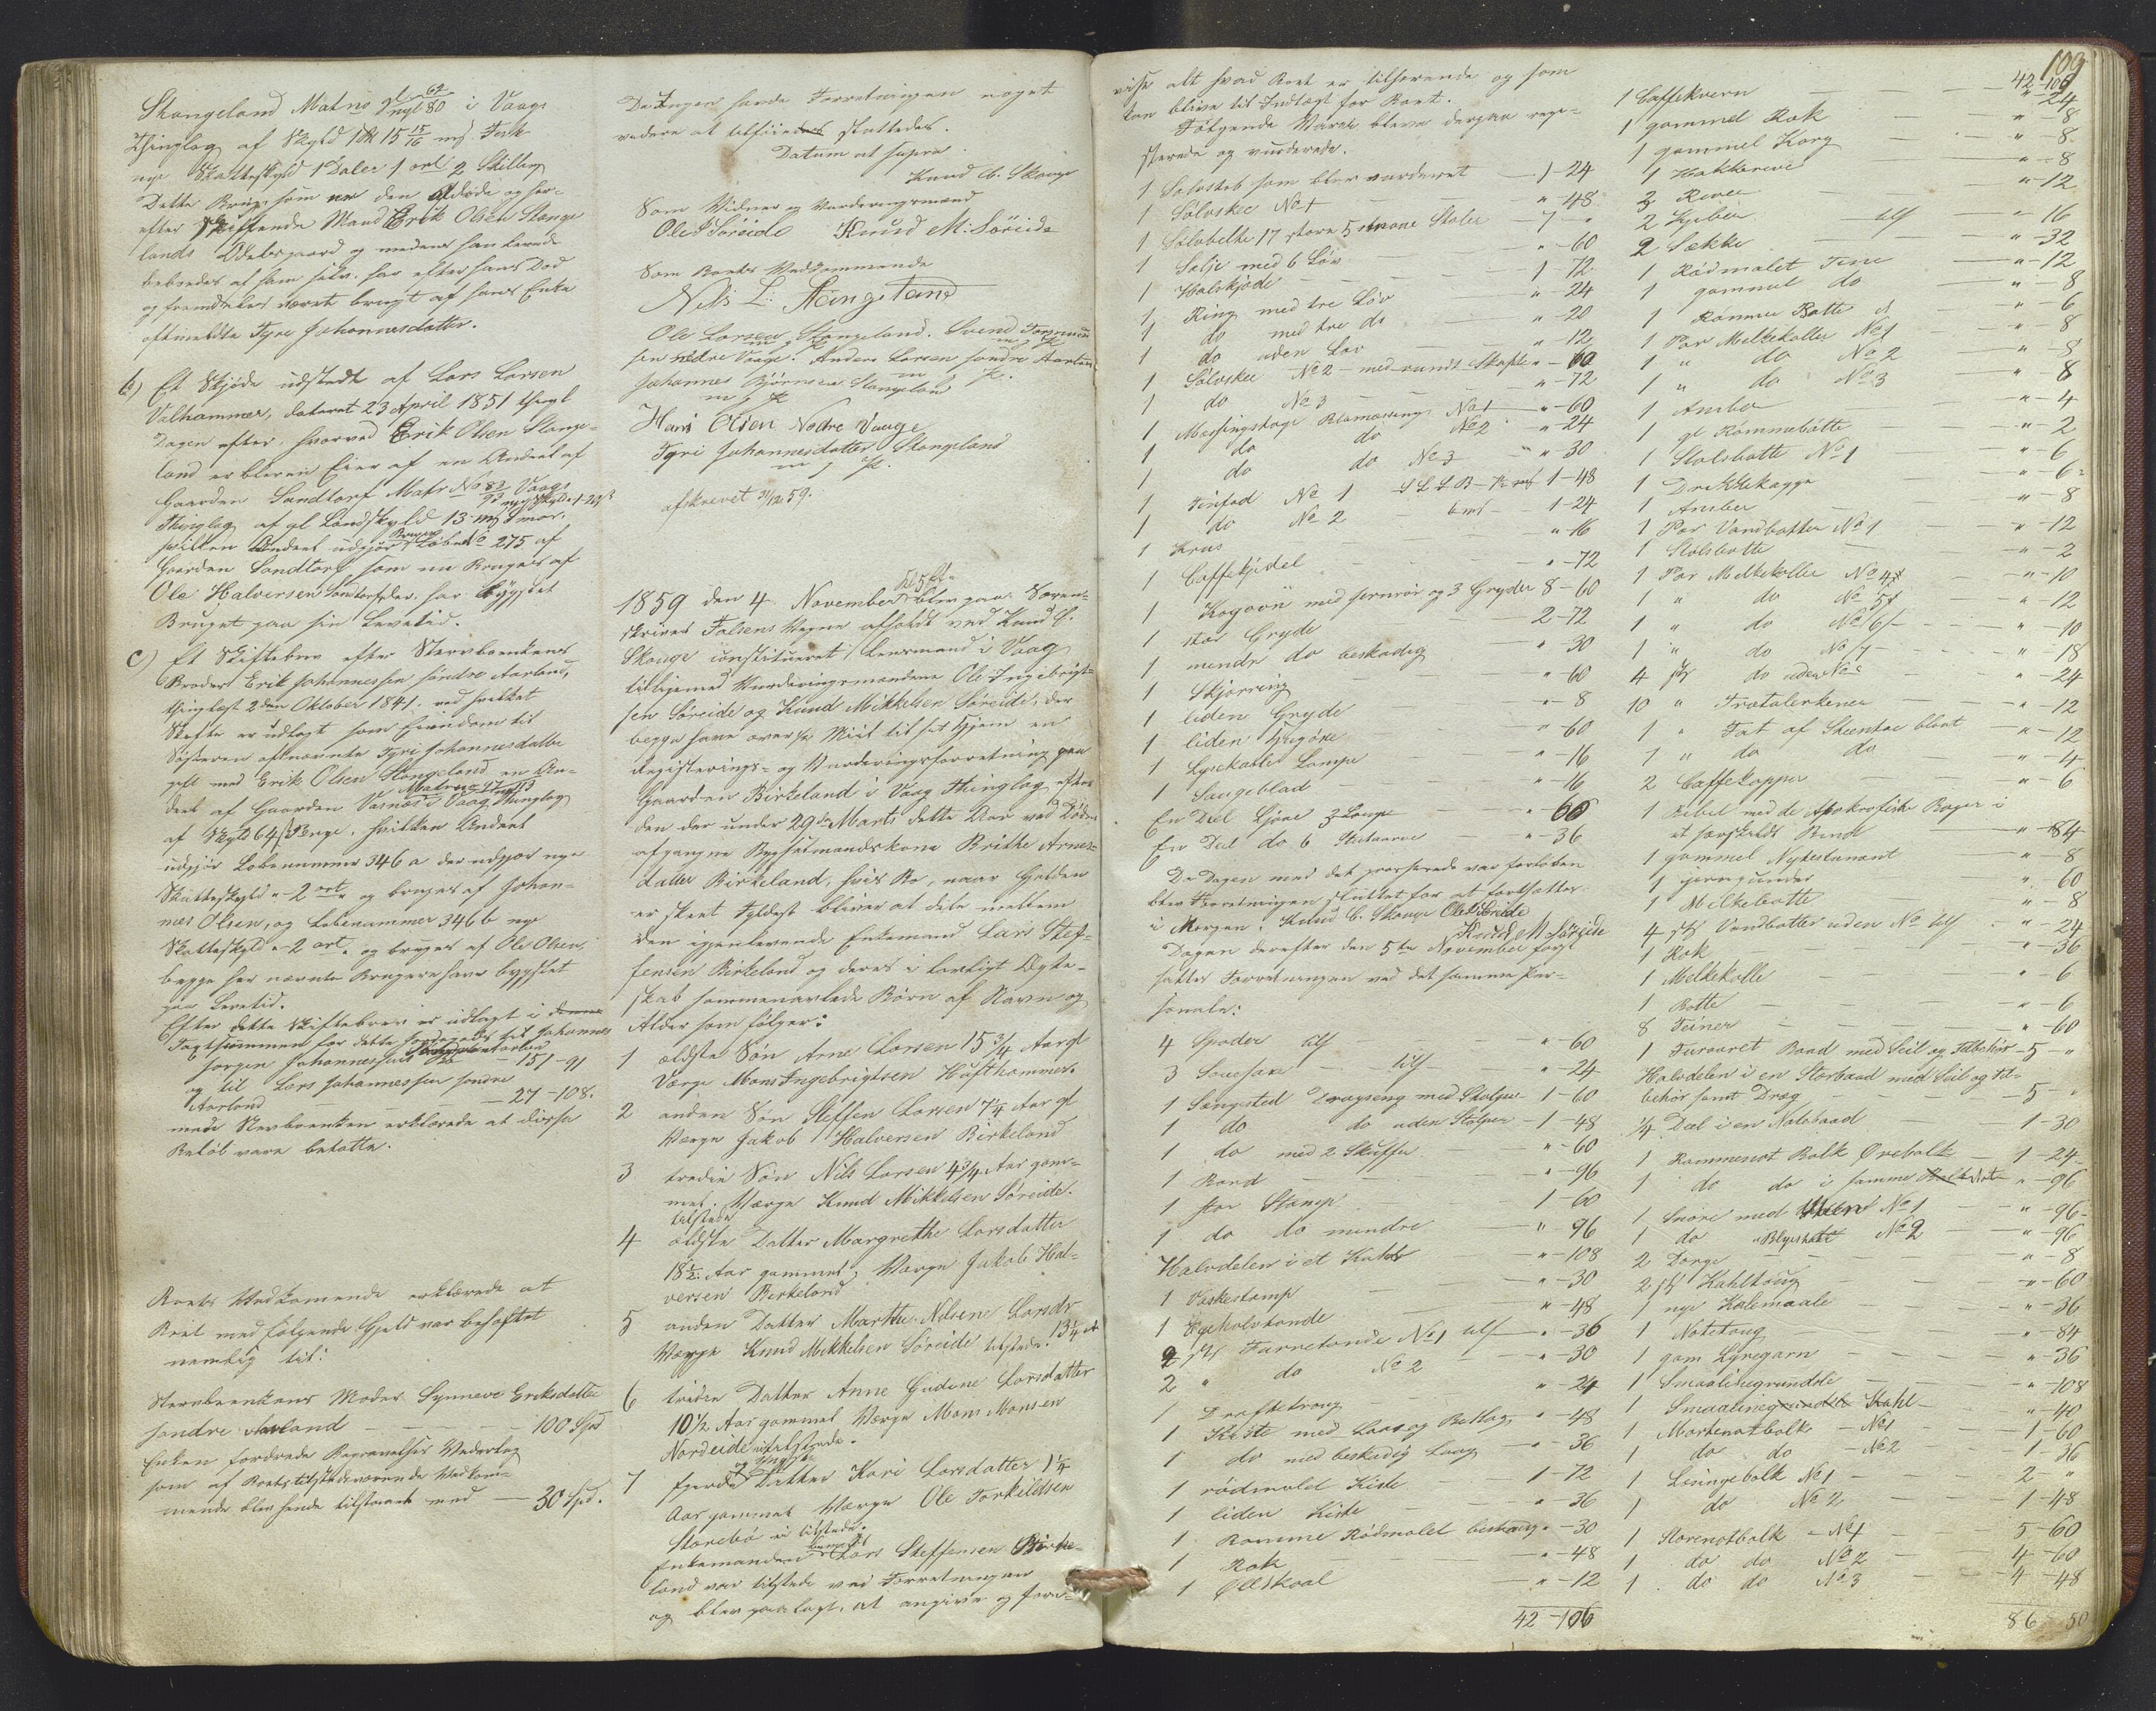 Stangeland Matno gl 62 nyt 80 i Vaags
Thinglag af Skyld 1 15 15/16 mf. Fisk
nye Skatteskyld 1 Daler 1 ort 2 Skilling
Dette Brug som var den afdøde og her-
efter skiftende Mand Erik Olsen Stange
lands Odelsgaard og medens han levede
beboedes af ham selv. har efter hans Død
og fremdeles været brugt af hans Enke
oftmeldte Tyri Johannesdatter.
b) Et Skjøde udstedt af Lars Larsen
Valhammer, dateret 23 April 1851 thingl
Dagen efter, hvorved Erik Olsen Stange-
land er bleven Eier af en Andeel af
Gaarden Sandtorf Matr No 83 93 Vaags
Thinglag af gl Landskyld 13 mf Smør.
hvilken Andeel udgjør Brugets Løbe No 275 af
Gaarden Sandtorf som nu bruges af
Ole Halversen Sandtorf der har bygslet
Bruget paa sin Levetid.
c) Et Skiftebrev efter Stervboenkens
Broder Erik Johannessen søndre Aarland,
thinglæst 2den Oktober 1841. ved hvilket
Skifte er udlagt som Eiendom til
Søsteren oftnævnte Tyri Johannesdatter
gift med Erik Olsen Stangeland en An-
deel af Gaarden Vasnæs i Vaag Thinglag
af Skyld 64 hvilken Andeel
udgjør Løbenummer 346 a der udgjør nye
Skatteskyld " - 2 ort " og bruges af Johan-
nes Olsen, og Løbenummer 346 b nye
Skatteskyld " - 2 ort " og bruges af Ole Olsen,
begge her nævnte Brugere have bygslet
paa Levetid.
Efter dette Skiftebrev er udlagt i
Johannes
Johannessen 151 - 91
og til Lars Johannessen søndre
Aarland — 27 - 108.
men Stervboenken erklærede at disse
Beløb vare betalte.
Boets Vedkomende erklærede at
Boet med følgende Gjeld var behæftet
nemlig til:
Stervboenkens Moder Synneve Eriksdatter
søndre Aarland — 100 Spd
Enken fordrede Begravelses Vederlag
som af Boets tilstedeværende Vedkom-
mende blev hende tilstaaet med — 30 Spd.
Da Ingen havde Forretningen noget
videre at tilføie sluttedes.
Datum ut supra.
Knud C. Skauge
Som Vidner og Vurderingsmænd
Ole I Søreide Knud M: Søreide
Som Boets Vedkommende
Nils L: Stangeland
Ole Larsen Stangeland. Svend
sen nedre Vaage. Anders Larsen søndre Aarland
Johannes Bjørnsen Stangeland
m f P.
Hans Olsen Nedre Vaage
Tyri Johannesdatter Stangeland
m f P.
afskrevet 31/12 59.
1859 den 4 November blev paa Soren-
skriver Falsens Vegne afholdt ved Knud C.
Skauge constitueret Lensmand i Vaag
tilligemed Vurderingsmændene Ole Ingebrigt-
sen Søreide og Knud Mikkelsen Søreide, der
begge have over 1/2 Miil til sit Hjem en
Registerings- og Vurderingsforretning paa
Gaarden Birkeland i Vaag Thinglag efter
den der under 29de Marts dette Aar ved Døden
afgangne Bygselmandskone Brithe Arnes-
datter Birkeland, hvis Bo, naar Gjelden
er skeet Fyldest bliver at dele mellem
den igjenlevende Enkemand Lars Stef-
fensen Birkeland og deres i lovligt Ægte-
skab sammenavlede Børn af Navn og
Alder som følger:
1 ældste Søn Arne Larsen 15 3/4 Aar gl
Værge Mons Ingebrigtsen Hufthammer.
2 anden Søn Steffen Larsen 7 1/4 Aar gl
Værge Jakob Halversen Birkeland
3 tredie Søn Nils Larsen 4 3/4 Aar gam-
mel. Værge Knud Mikkelsen Søreide.
tilstede
4 ældste Datter Margrethe Larsdatter
18 1/2 Aar gammel, Værge Jakob Hal-
versen Birkeland
5 anden Datter Marthe Nilsine Larsdr
Værge Knud Mikkelsen Søreide tilstede. 13 1/4 A
6 tredie Datter Anne Gudine Larsdatter
10 1/2 Aar gammel Værge Mons Monsen
Nordeide tilstede.
7 fjerde og yngste Datter Kari Larsdatter 1 1/4
Aar gammel Værge Ole Torkildsen
Storebø ei tilstede.
Enkemanden Lars Steffensen Birke-
land var tilstede ved Forretningen
og blev paalagt, at angive og frem-
vise alt hvad Boet er tilhørende og som
kan blive til Indtægt for Boet.
Følgende Varer bleve derpaa regi-
sterede og vurderede.
1 Sølvstob som blev vurderet — 1 - 24
1 Sølvskee No 1 — " - 48
1 Sølvbelte 17 store 5 smaae Stoler — 7 - "
1 Sølje med 6 Løv — " - 60
1 Halskjæde — 1 - 72
1 Ring med tre Løv — " - 24
1 do med tre do — " - 20
1 do uden Løv — " - 12
1 Sølvskee No 2 - med rundt Skaft " - 60
1 do No 3 — " - 72
1 Messingstage No 1 " - 60
1 do do No 2 " - 24
1 do do No 3 " - 30
1 Tinfad No 1 S L S B — 1 - 48
1 do No 2 — 1 - 24
1 Krus — " - 16
1 Caffekjedel — " - 72
1 Kogovn med jernrør og 3 Gryder 8 - 60
1 stor Gryde — 2 - 72
1 mindre do beskadig — " - 30
1 Skjørring — " - 60
1 liden Gryde — " - 8
1 liden — " - 60
1 Lysekaste Lampe — " - 16
1 Saugeblad — " - 16
En Deel Ljaae 3 Lange — " - 60
En Deel do 6 — " - 36
Da Dagen med det passerede var forløben
blev Forretningen sluttet for at fortsættes
i Morgen. Knud C. Skauge Ole I Søreide
Knud M. Søreide
Dagen derefter den 5te November fort
sattes Forretningen ved det samme Per-
sonale:
4 Spader tils — " - 60
3 Sauesaxe — tils — " - 24
1 Sængested Dragseng med Stolper 1 - 60
1 do do uden Stolper — 1 - 48
1 do med 2 Skuffer — " - 60
1 Bord — " - 96
1 stor Stamp — 1 - 60
1 do do mindre — " - 96
Halvdelen i et — " - 108
1 Vaskestamp — " - 30
1 — " - 48
2 Tarretønde No 1 tils — " - 36
2 " do No 2 — " - 30
1 Draftetroug — " - 24
1 Kiste med Laas og Beslag " - 48
1 do med beskadig Laag — " - 36
1 rødmalet Kiste — 1 - 72
1 liden Kiste — " - 36
1 Komme Rødmalet beskadig " - 30
1 Rok — " - 48
1 Ølskaal — " - 12
42 - 106
109
42 - 106
1 Caffekvern — " - 24
1 gammel Rok — " - 8
1 gammel Korg — " - 8
1 Hakkerive — " - 8
3 River — " - 12
2 Kjiber tils — " - 16
2 Sække — " - 32
1 Rødmalet Tine — " - 12
1 gammel do — " - 8
1 Rømme Botte — " - 6
1 Par Melkekoller No 1 — " - 8
1 " do No 2 — " - 8
1 " do No 3 — " - 8
1 Ambar — " - 4
1 gl Rømmebøtte — " - 2
1 Stolsbøtte No 1 — " - 6
1 Drikkekagge — " - 6
1 Ambar — " - 8
1 Par Vandbøtter No 1 — " - 12
1 Stolsbøtte — " - 2
1 Par Melkekoller No 4 — " - 10
1 " do No 5 — " - 12
1 " do No 6 — " - 10
1 " do No 7 — " - 18
4 do uden No — " - 24
10 " Trætalerkener — " - 12
1 " Fat af Steentøi blaat — " - 12
1 " do do — " - 4
2 Caffekopper — " - 6
1 Bibel med de Apokrofiske Bøger i
et særskildt Bind — " - 84
1 gammel Nytestament — " - 8
1 — " - 60
1 Melkebøtte — " - 8
4 Vandbøtter uden No tils " - 24
1 Rok — " - 36
1 Melkekolle — " - 6
1 Botte — " - 6
8 Teiner — " - 60
1 Baad med Seil og Tilbehør — 5 - "
Halvdelen i en Storbaad med Seil og til-
behør samt Dræg — 5 - "
1/4 Deel i en Notebaad — 1 - 30
1 Rammenot Bolk Ørebolk — 1 - 24
1 do do i samme — " - 96
1 Snøre med No 1 — " - 96
1 do No 2 — " - 96
2 Dorge — " - 8
2 Kabeltoug — " - 60
1 nye — " - 36
1 Notetoug — " - 84
1 gam Lysegarn — " - 36
1 — " - 108
1 — " - 40
1 Mortenotbolk - No 1 1 - 60
1 do do No 2 1 - 36
1 Lusingebolk No 1 — 2 - "
1 do No 2 — 1 - 48
1 Storenotbolk - No 1 5 - 60
1 do do No 2 4 - 60
1 do do No 3 4 - 48
86 50